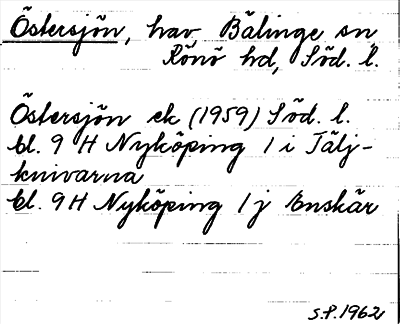 Östersjön, hav Bälinge sn
Rönö hd, Söd. l.
Östersjön ek (1959) Söd. l.
bl. 9 H Nyköping 1 i Tälj-
knivarna
bl. 9 H Nyköping 1 j Enskär
S.P. 1962